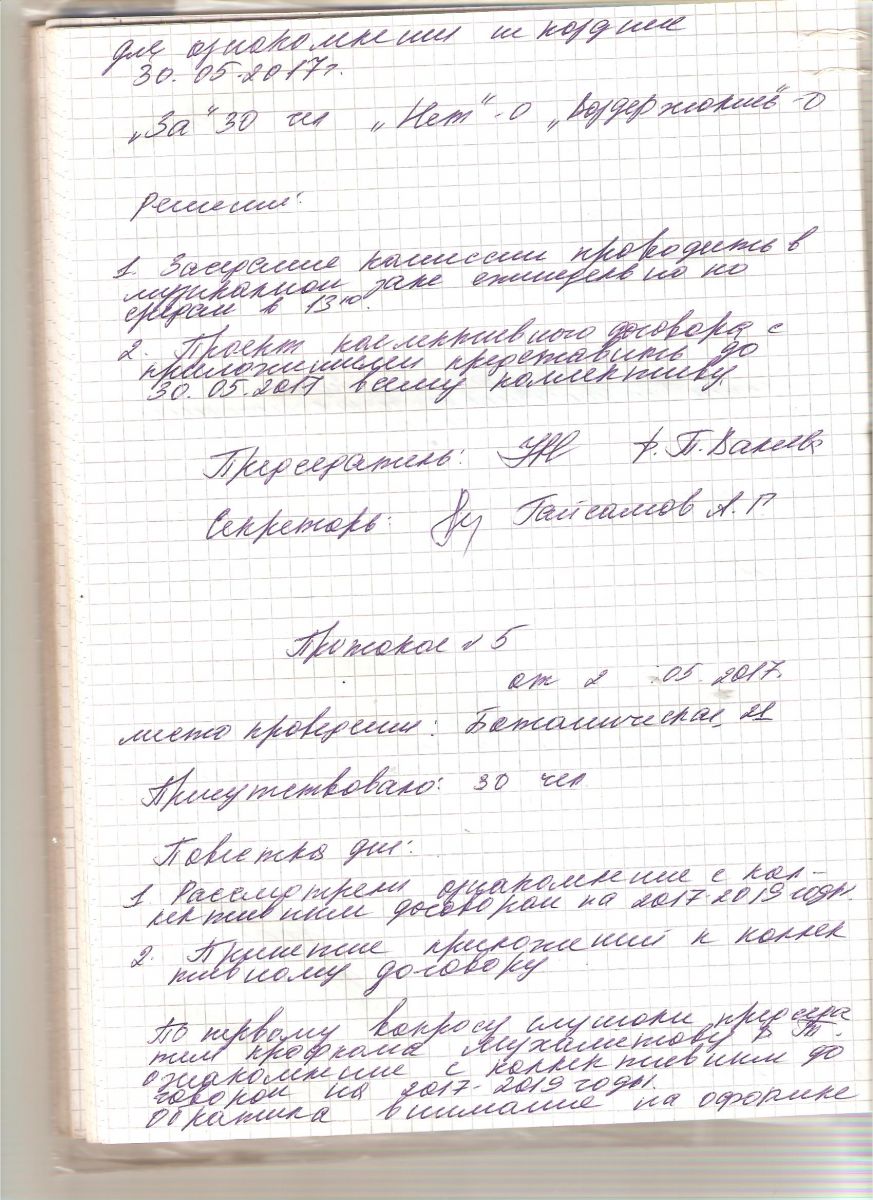 для ознакомления
30.05.2017г.
„За“ 30 чел „Нет“-0 „Воздержались“-0
Решении:
1. Заседание комиссии проводить в
музыкальном зале еженедельно по
средам в 13⁰⁰.
2. Проект коллективного договора с
приложением представить до
30.05.2017 всему коллективу.
Председатель: П. Валеева
Секретарь: Гайсамов А.Г
Протокол № 5
от 2 .05.2017.
место проведения: Ботаническая, 21
Присутствовало: 30 чел
Повестка дня:
1 Рассмотрели ознакомление с кол-
лективным договором на 2017-2019 годы.
2. Принятие приложений к коллек
тивному договору
По первому вопросу слушали председа
теля профкома Мухаметову
ознакомление с коллективным до
говором на 2017-2019 годы.
Обратила внимание на оформле